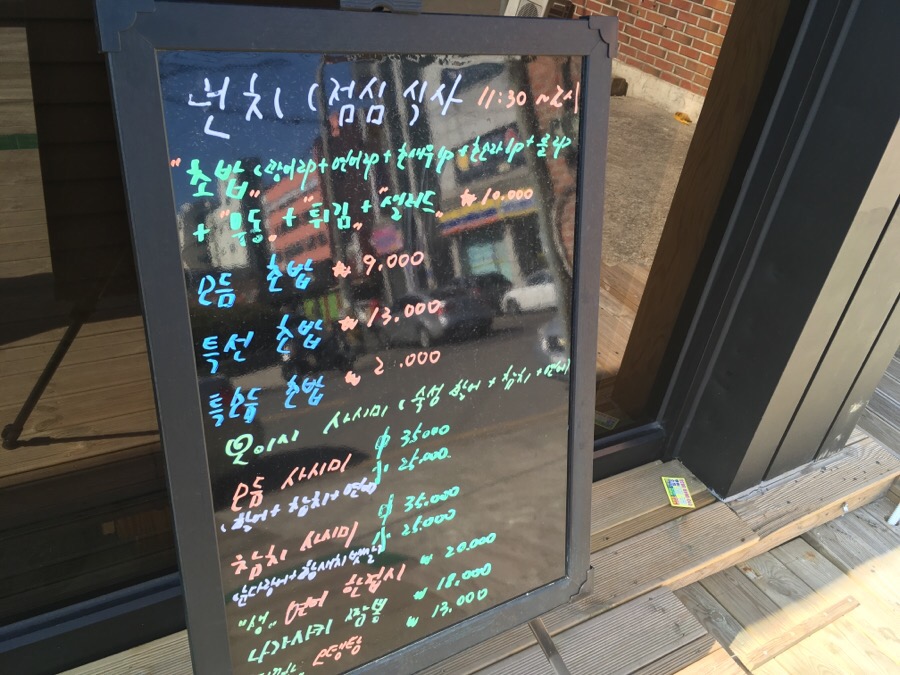 런치 (점심 식사 11:30 ~ 2시
"초밥" (광어2p + 연어2p + 초새우1p + 1p + 롤2p
+ "우동" + "튀김" + "샐러드" ₩10.000
모듬 초밥 ₩ 9.000
특선 초밥 ₩ 13.000
특모듬 초밥 ₩ 2 .000
모이시 사시미 (숙성 광어 + 참치 + 연어)
모듬 사시미 中 35.000
(광어 + 참치 + 연어) 小 25.000
참치 사시미 中 35.000
小 25.000
"생" 연어 한접시 ₩ 20.000
나가사키 짬뽕 ₩ 18.000
오뎅탕 ₩ 13.000